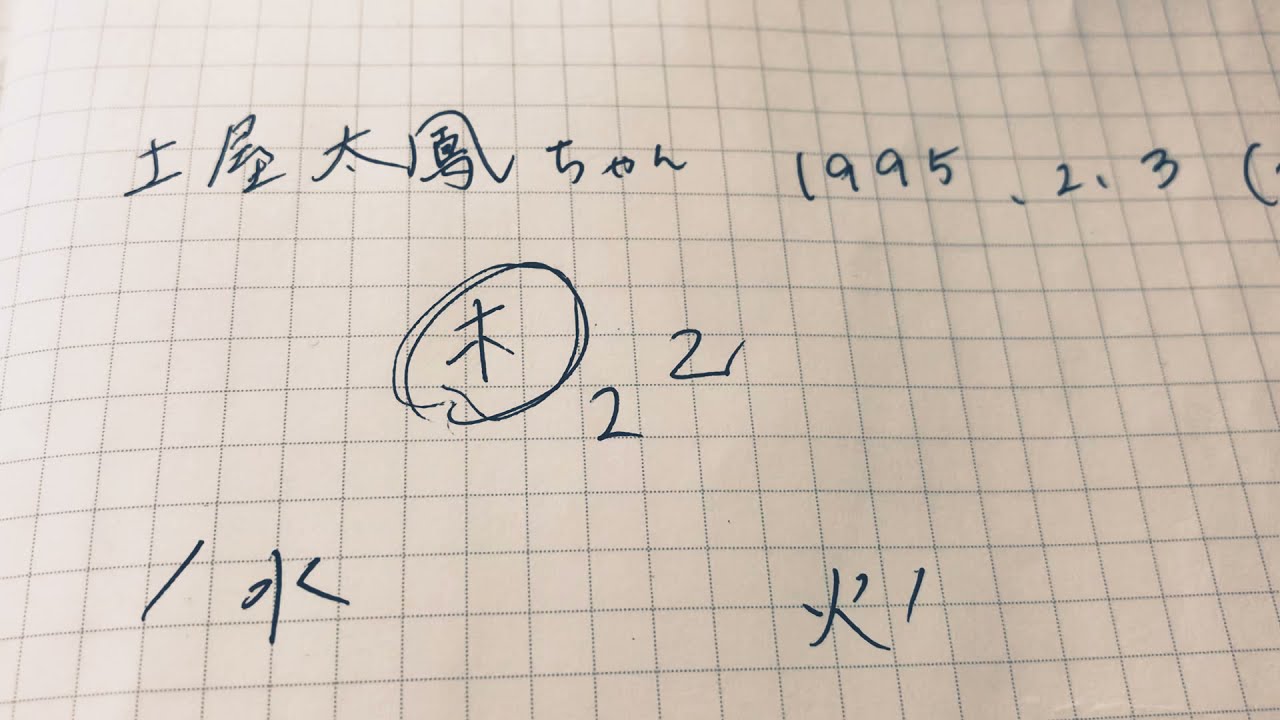 土屋太鳳ちゃん 1995.2.3 (
木 2
2
1 水 火 1